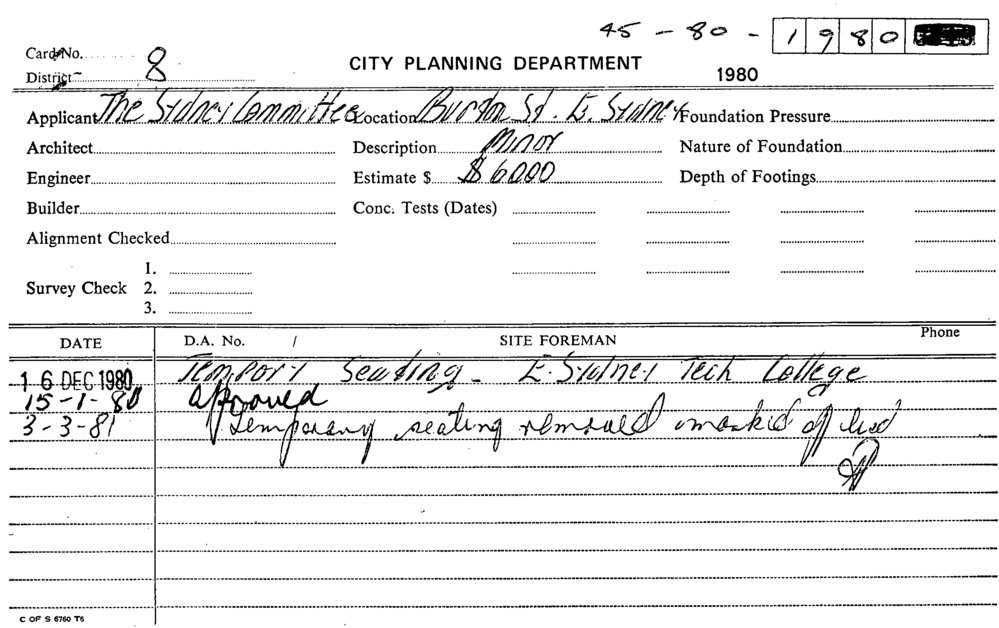 45 - 80 - 1980
Card No.
District 8
CITY PLANNING DEPARTMENT
1980
Applicant The Sydney Committee Location Burton St. E. Sydney Foundation Pressure
Architect Description Minor Nature of Foundation
Engineer Estimate $ $6000 Depth of Footings
Builder Conc. Tests (Dates)
Alignment Checked
1.
Survey Check 2.
3.
DATE D.A. No. / SITE FOREMAN Phone
16 DEC 1980 Tempory Seating - E. Sydney Tech College
15-1-80 approved
3-3-81 Temporary seating removed marked off
C OF S 6760 T5